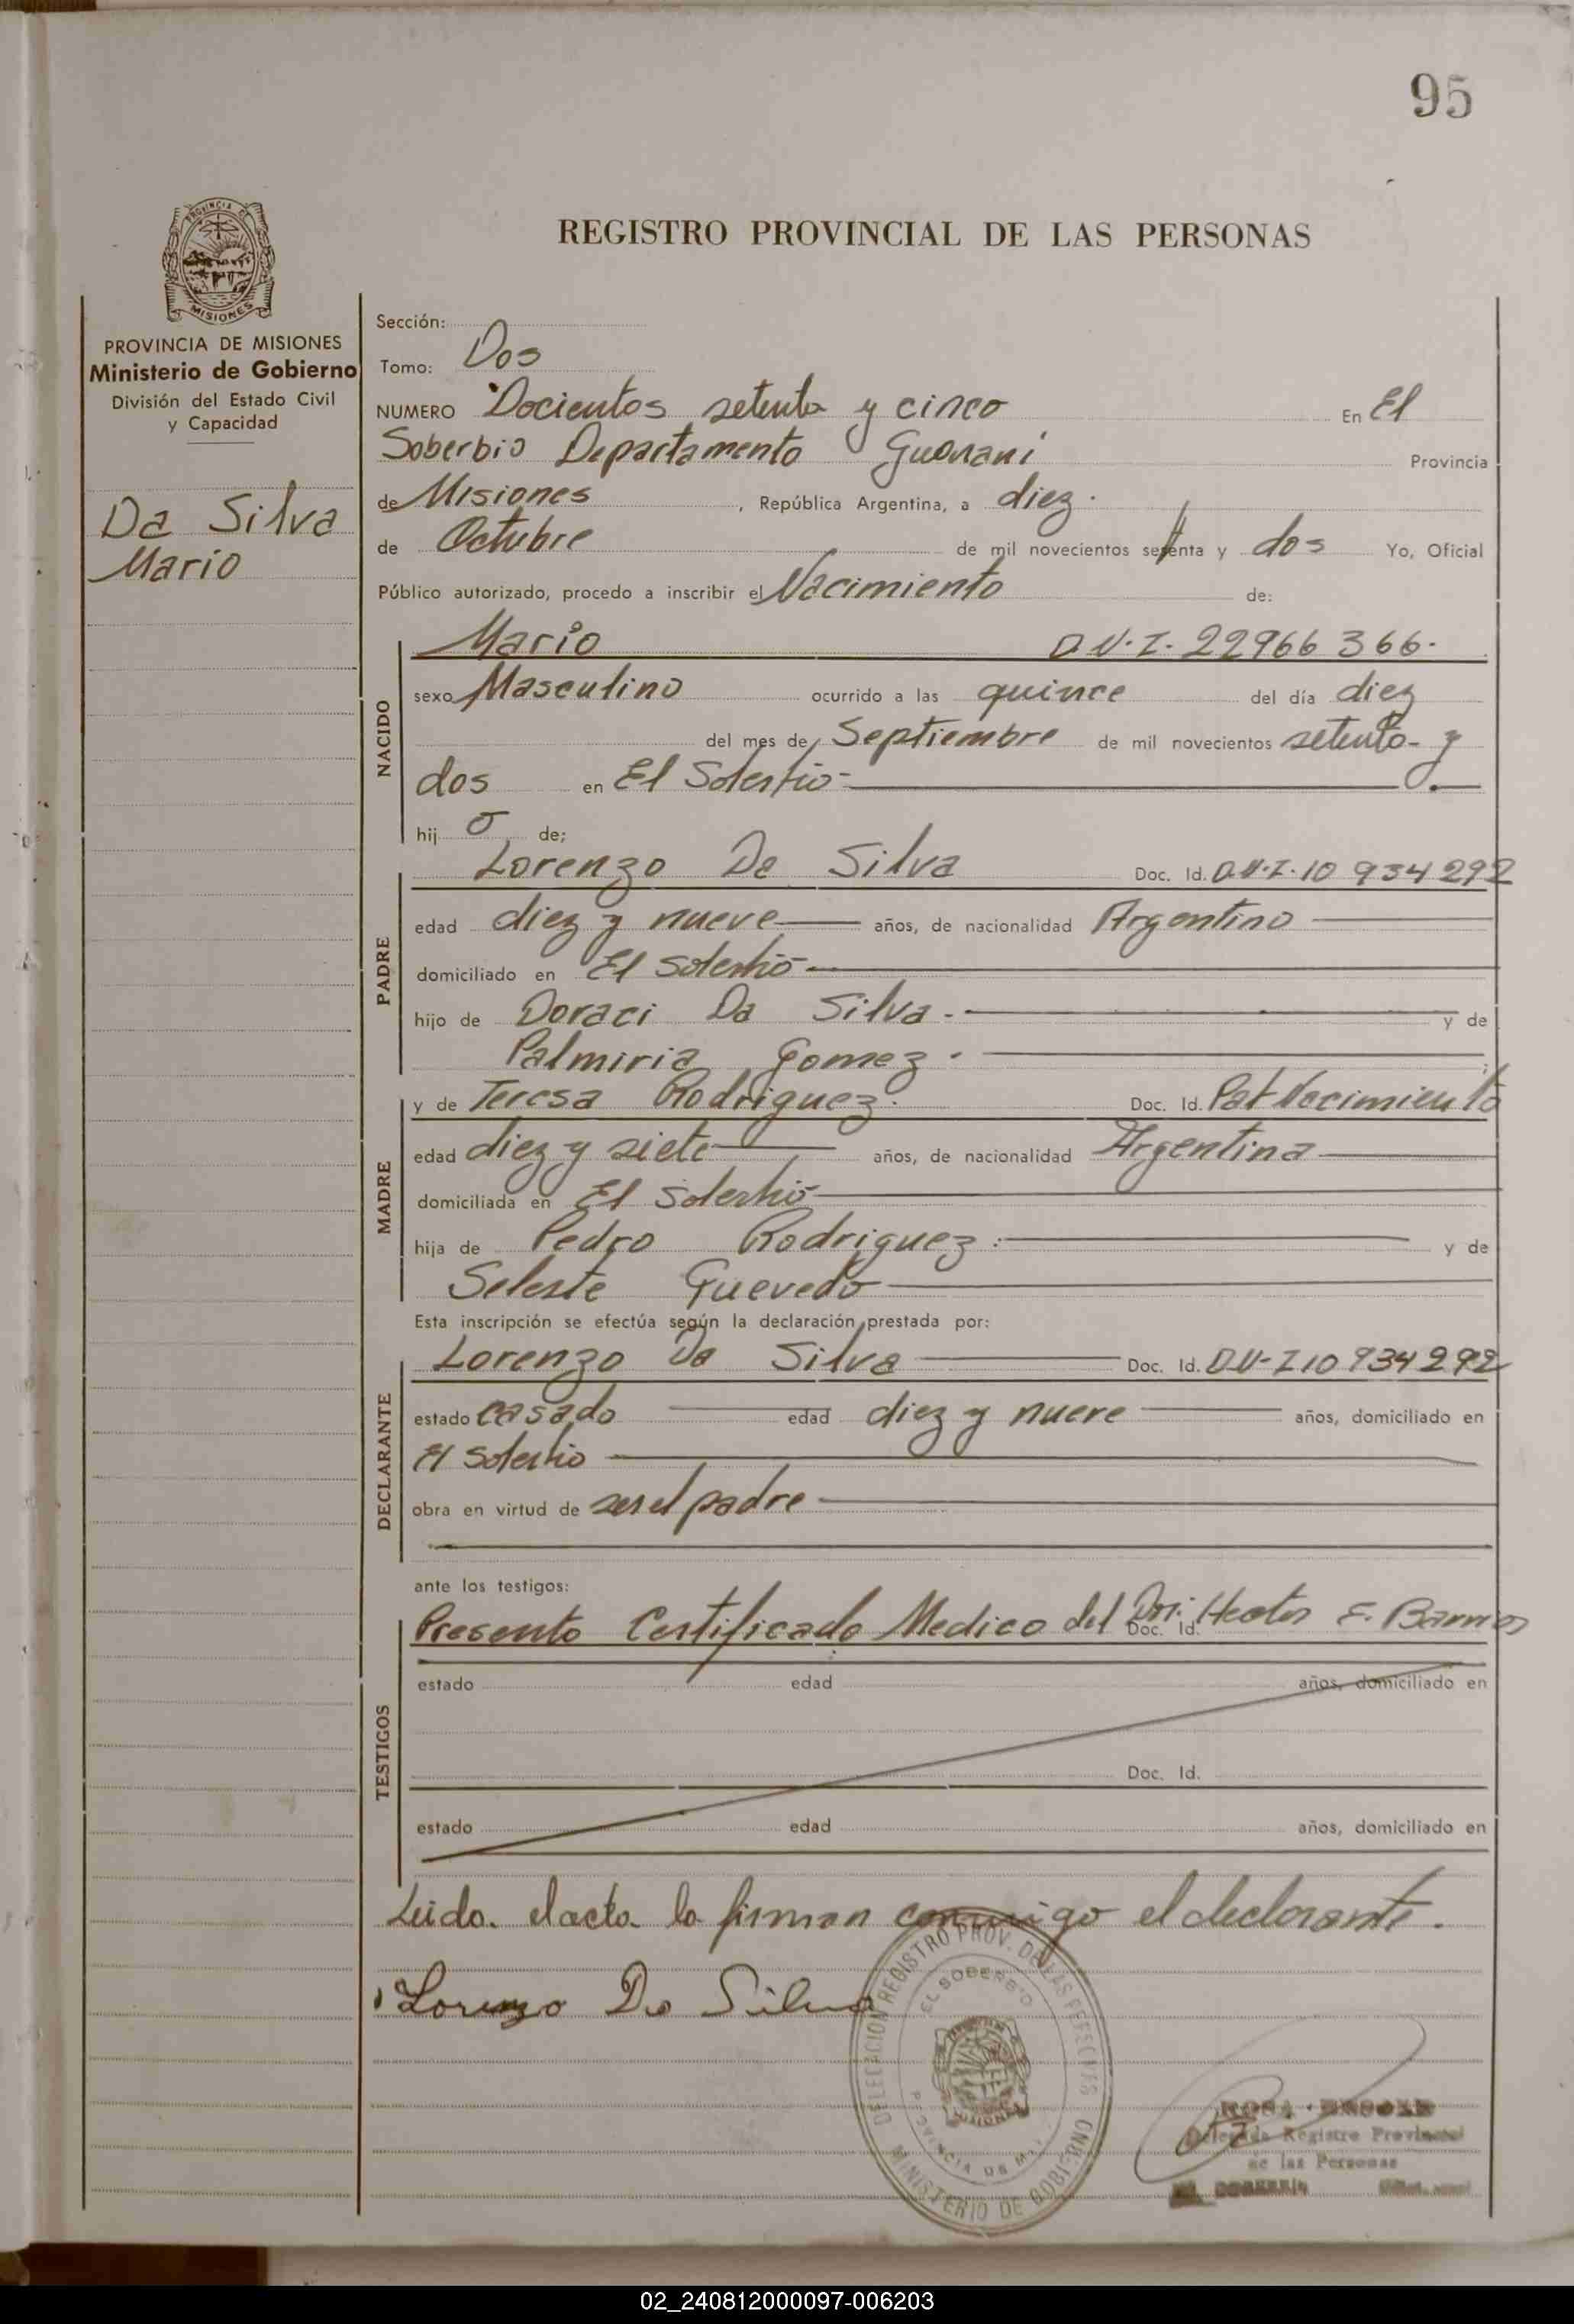 95
REGISTRO PROVINCIAL DE LAS PERSONAS
PROVINCIA DE MISIONES
Ministerio de Gobierno
División del Estado Civil
y Capacidad
Da Silva
Mario
Sección:
Tomo: Dos
NUMERO Docientos setenta y cinco En El
Soberbio Departamento Guarani Provincia
de Misiones, República Argentina, a diez.
de Octubre de mil novecientos setenta y dos Yo, Oficial
Público autorizado, procedo a inscribir el Nacimiento de:
NACIDO
Mario D.N.I. 22966 366.
sexo Masculino ocurrido a las quince del día diez
del mes de Septiembre de mil novecientos setenta y
dos en El Soberbio
hij o de;
PADRE
Lorenzo Da Silva Doc. Id. D.N.I. 10 934 292
edad diez y nueve años, de nacionalidad Argentino
domiciliado en El Soberbio
hijo de Doraci Da Silva y de
Palmiria Gomez.
MADRE
y de Teresa Rodriguez. Doc. Id. Part Nacimiento
edad diez y siete años, de nacionalidad Argentina
domiciliada en El Soberbio
hija de Pedro Rodriguez y de
Seleste Quevedo
Esta inscripción se efectúa según la declaración prestada por:
DECLARANTE
Lorenzo Da Silva Doc. Id. D.N-I 10 934 292
estado casado edad diez y nueve años, domiciliado en
El Soberbio
obra en virtud de ser el padre
ante los testigos:
TESTIGOS
Presento Certificado Medico del Dr. Hector E. Barrios
Doc. Id.
estado edad años, domiciliado en
Doc. Id.
estado edad años, domiciliado en
Leida el acta la firman conmigo el declarante.
Lorenzo Da Silva
DELEGACION REGISTRO PROV. DE LAS PERSONAS
EL SOBERBIO
PROVINCIA DE
MISIONES
MINISTERIO DE GOBIERNO
Delegada Registro Provincial
de las Personas
02_240812000097-006203